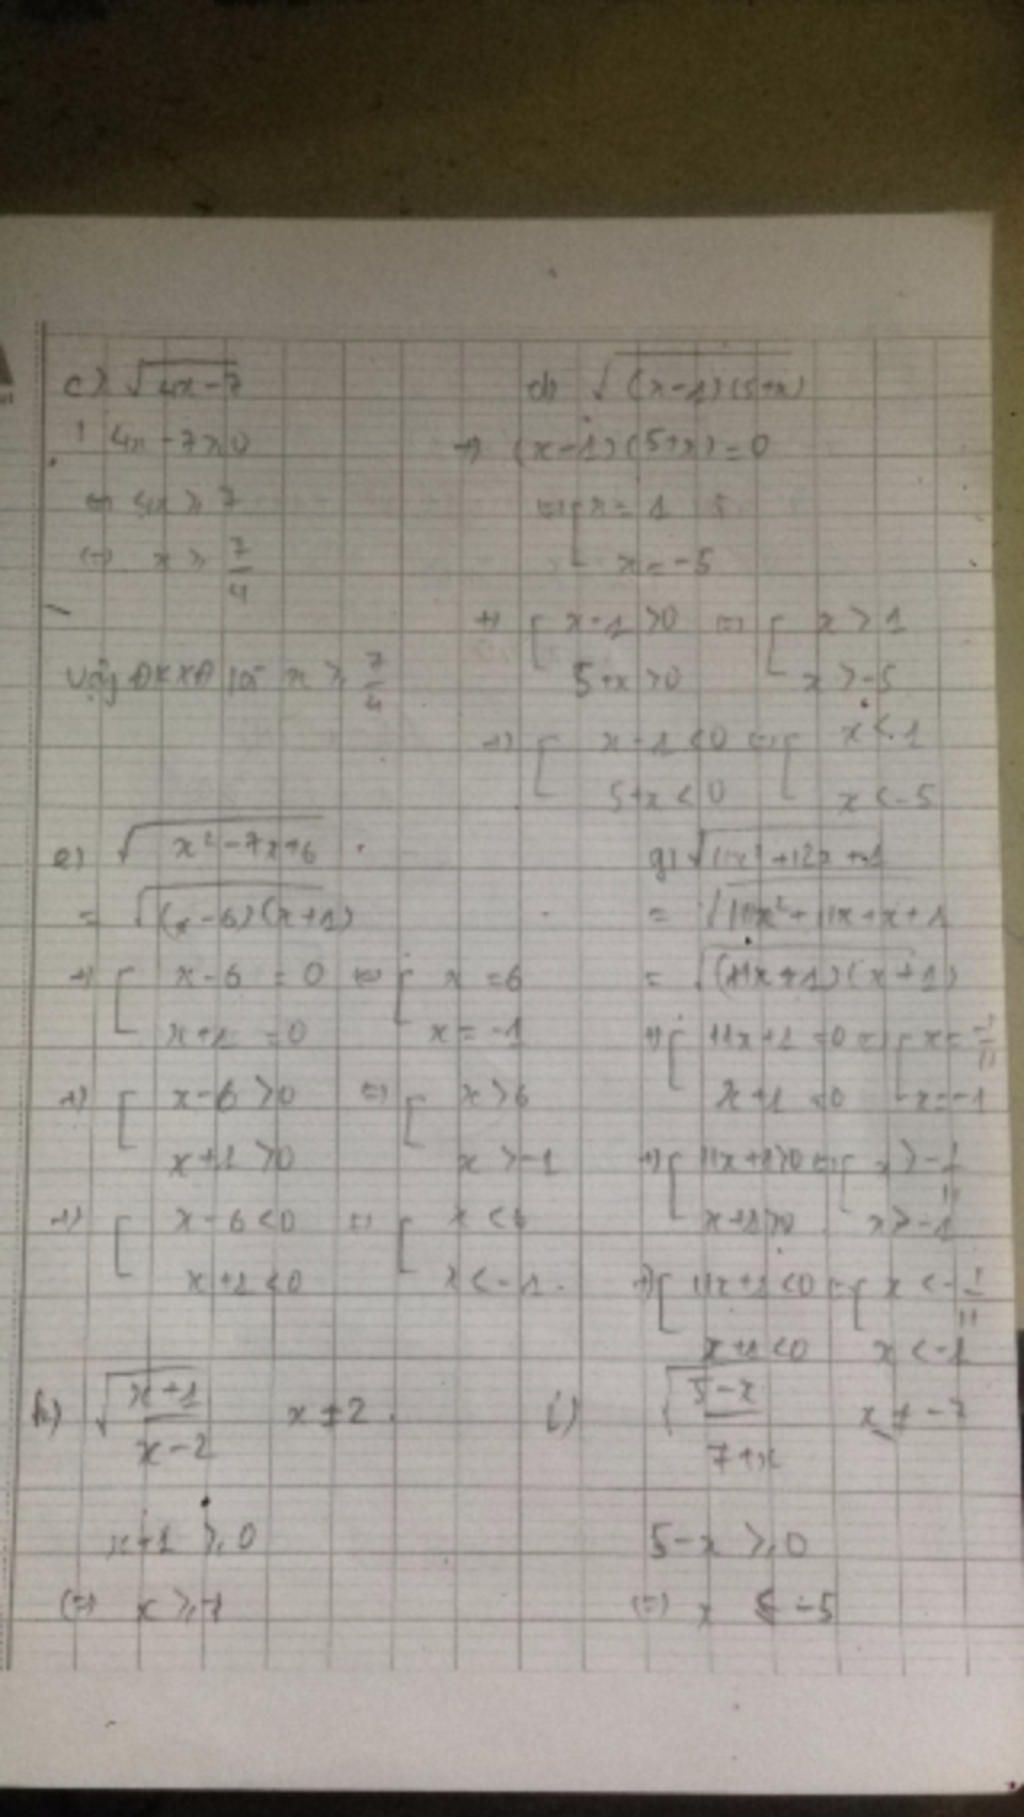 c) √(4x-7)
4x - 7 ≥ 0
⇔ 4x ≥ 7
⇔ x ≥ 7/4
Vậy ĐKXĐ là x ≥ 7/4
d) √((x-1)(5+x))
+) (x-1)(5+x) = 0
⇔ [ x = 1
x = -5
+) [ x-1 > 0 ⇔ [ x > 1
5+x > 0 x > -5
+) [ x-1 < 0 ⇔ [ x < 1
5+x < 0 x < -5
e) √(x²-7x+6)
= √((x-6)(x+1))
+) [ x-6 = 0 ⇔ [ x = 6
x+1 = 0 x = -1
+) [ x-6 > 0 ⇔ [ x > 6
x+1 > 0 x > -1
+) [ x-6 < 0 ⇔ [ x < 6
x+1 < 0 x < -1.
g) √(11x²+12x+1)
= √(11x²+11x+x+1)
= √((11x+1)(x+1))
+) [ 11x+1 = 0 ⇔ [ x = -1/11
x+1 = 0 x = -1
+) [ 11x+1 > 0 ⇔ [ x > -1/11
x+1 > 0 x > -1
+) [ 11x+1 < 0 ⇔ [ x < -1/11
x+1 < 0 x < -1
h) √((x+1)/(x-2)) x ≠ 2.
x+1 ≥ 0
⇔ x ≥ -1
i) √((5-x)/(7+x)) x ≠ -7
5-x ≥ 0
⇔ x ≤ -5